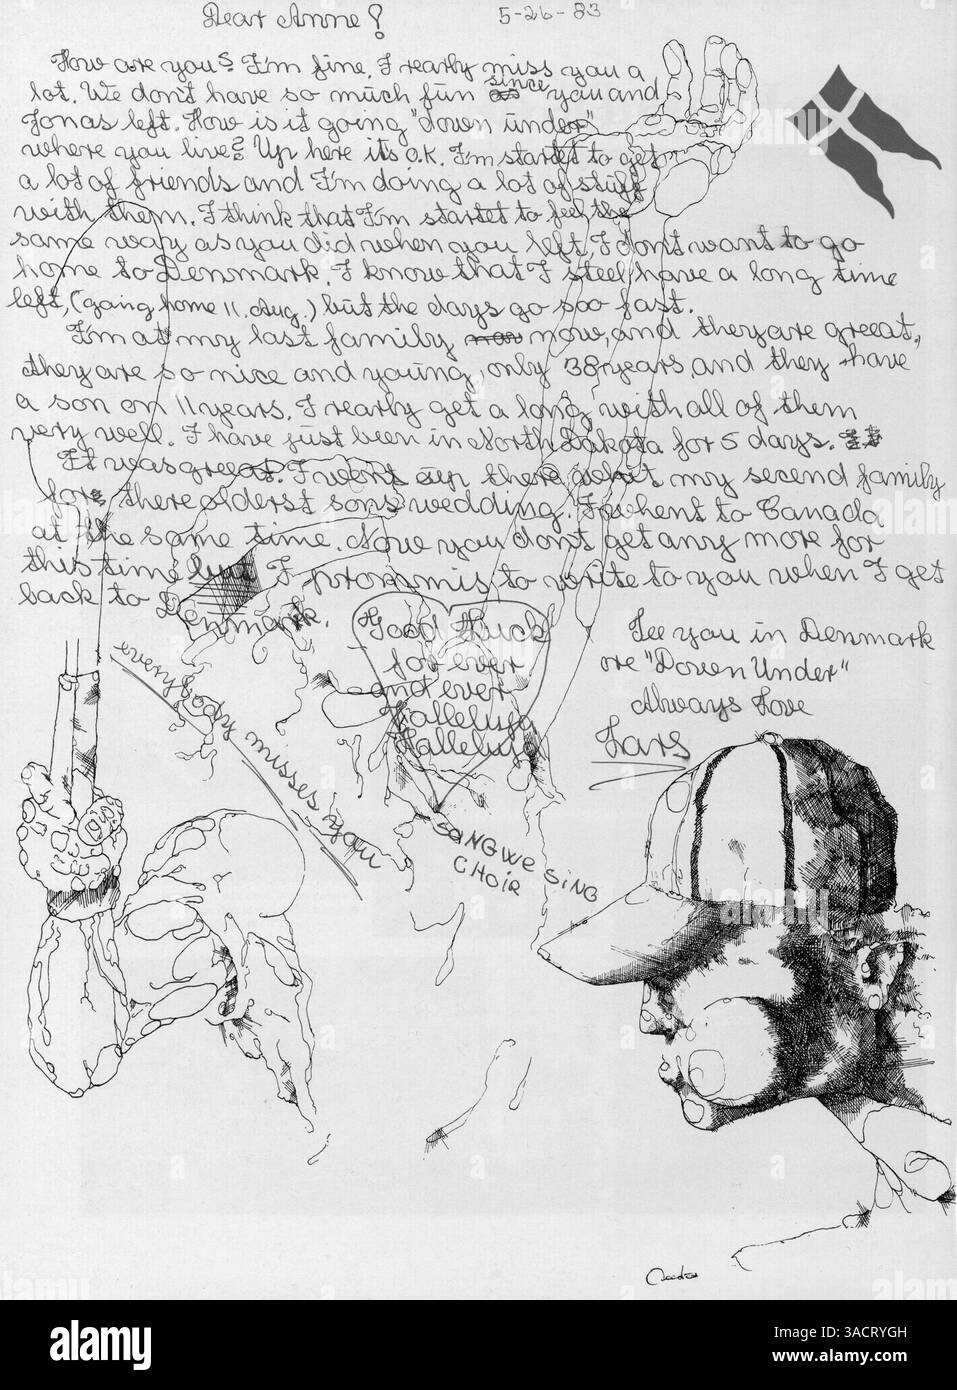 Dear Anne!
5-26-83
How are you? I'm fine. I rearly miss you a
lot. We don't have so much fun since you and
Jonas left. How is it going "down under"
where you live? Up here its o.k. I'm startet to get
a lot of friends and I'm doing a lot of stuff
with them. I think that I'm startet to feel the
same way as you did when you left, I don't want to go
home to Denmark. I know that I steel have a long time
left, (going home 11. Aug.) but the days go soo fast.
I'm at my last family now, and they are greeat,
they are so nice and young, only 38 years, and they have
a son on 11 years. I rearly get a long with all of them
very well. I have just been in North Dakota for 5 days.
It was greeat. I went up there whit my second family
for there olderst sons wedding. I whent to Canada
at the same time. Now you don't get any more for
this time but I prommis to write to you when I get
back to Denmark.
Good Luck
for ever
and ever
Halleluja
Halleluja
See you in Denmark
ore "Down Under"
Always Love
Lars
everybody misses you
SANGWE SING
CHOIR
alamy
Image ID: 3ACRYGH
www.alamy.com